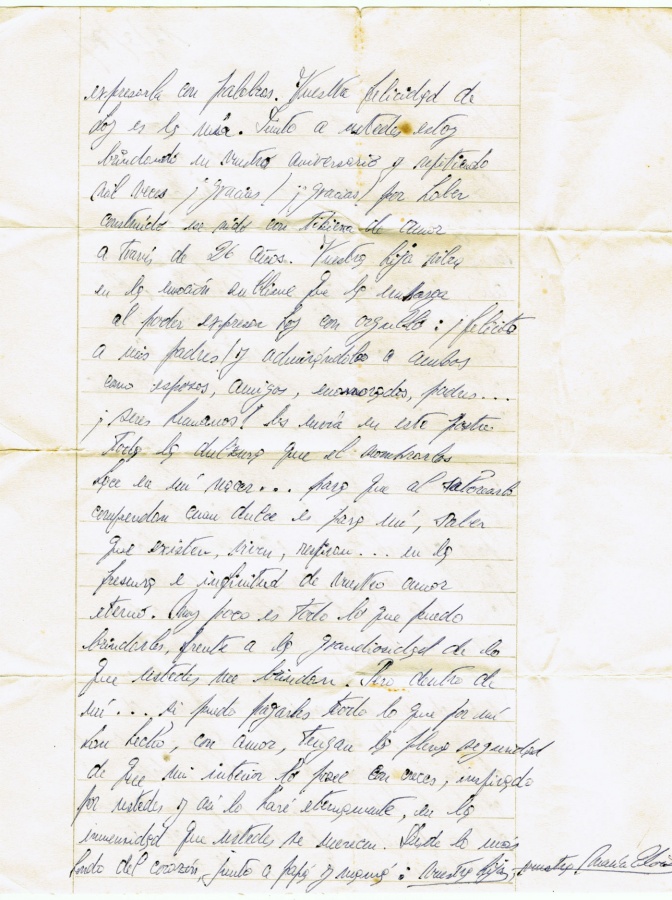 expresarla con palabras. Vuestra felicidad de
hoy es la mía. Junto a ustedes estoy
brindando en vuestro aniversario y repitiendo
mil veces ¡¡gracias! ¡¡gracias! por haber
construido un nido con de amor
a través de 26 años. Vuestra hija
en la emoción sublime que la embarga
al poder expresar hoy con orgullo: ¡felicito
a mis padres! y admirándolos a ambos
como esposos, amigos, enamorados, padres...
¡seres humanos! les envía en este postre
toda la dulzura que el nombrarlos
hace en mí nacer... para que al saborearlo
comprendan cuan dulce es para mí, saber
que existen, viven, respiran... en la
fresura e infinitud de vuestro amor
eterno. Muy poco es todo lo que puedo
brindarles, frente a la grandiosidad de lo
que ustedes me brindan. Pero dentro de
mí... si puedo pagarles todo lo que por mí
han hecho, con amor, tengan la plena seguridad
de que mi interior lo posee con creces, inspirado
por ustedes y así lo haré eternamente, en la
inmensidad que ustedes se merecen. Desde lo más
hondo del corazón, junto a papá y mamá: vuestra hija, vuestra María